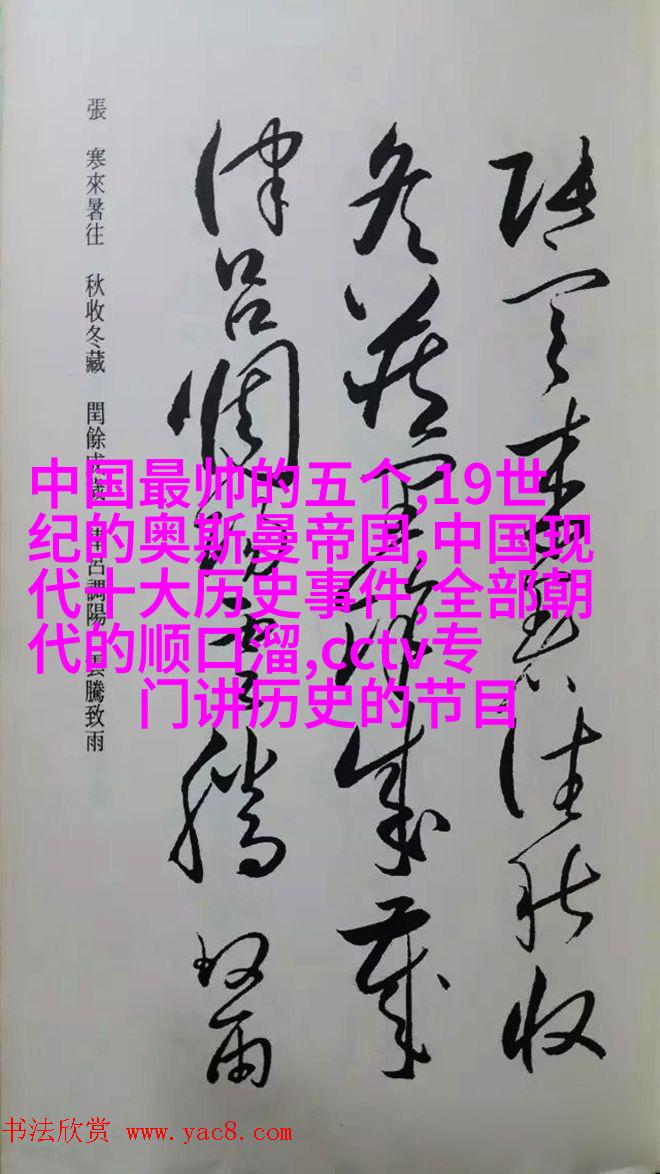 張寒來暑往秋收
冬藏閏餘成歲
律呂調陽雲騰致雨
張 寒來暑往 秋收冬藏 閏餘成歲 律呂調陽 雲騰致雨
中国最帅的五个,19世
纪的奥斯曼帝国,中国现
代十大历史事件,全部朝
代的顺口溜,cctv专
门讲历史的节目
书法欣赏 www.yac8.com